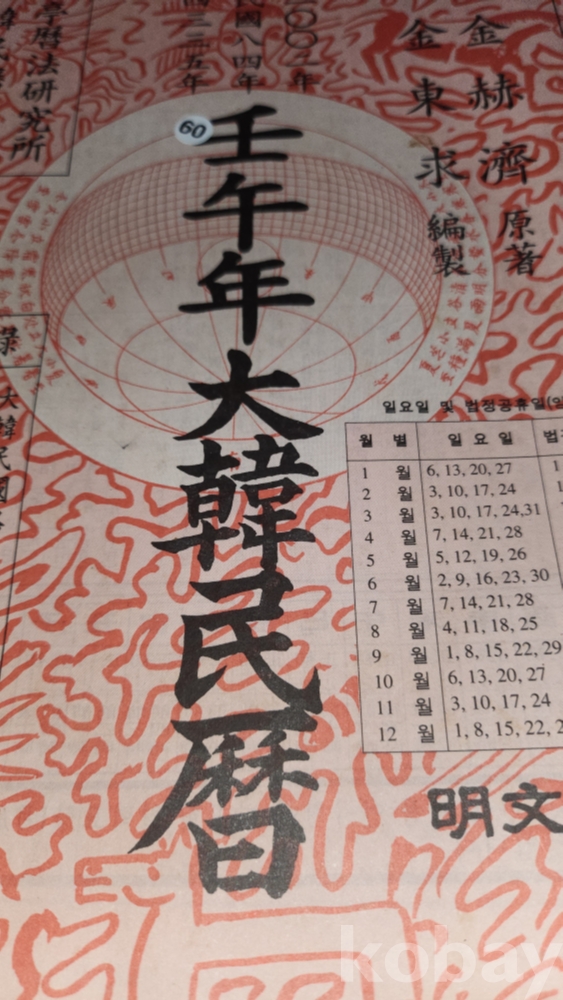 金赫濟 原著
金東求 編製
〇〇二年
民國八四年
四三三五年
學曆法研究所
60
壬午年大韓民曆
大韓民國
일요일 및 법정공휴일
월 별 일 요 일
1 월 6, 13, 20, 27
2 월 3, 10, 17, 24
3 월 3, 10, 17, 24,31
4 월 7, 14, 21, 28
5 월 5, 12, 19, 26
6 월 2, 9, 16, 23, 30
7 월 7, 14, 21, 28
8 월 4, 11, 18, 25
9 월 1, 8, 15, 22, 29
10 월 6, 13, 20, 27
11 월 3, 10, 17, 24
12 월 1, 8, 15, 22, 2
明文
kobay